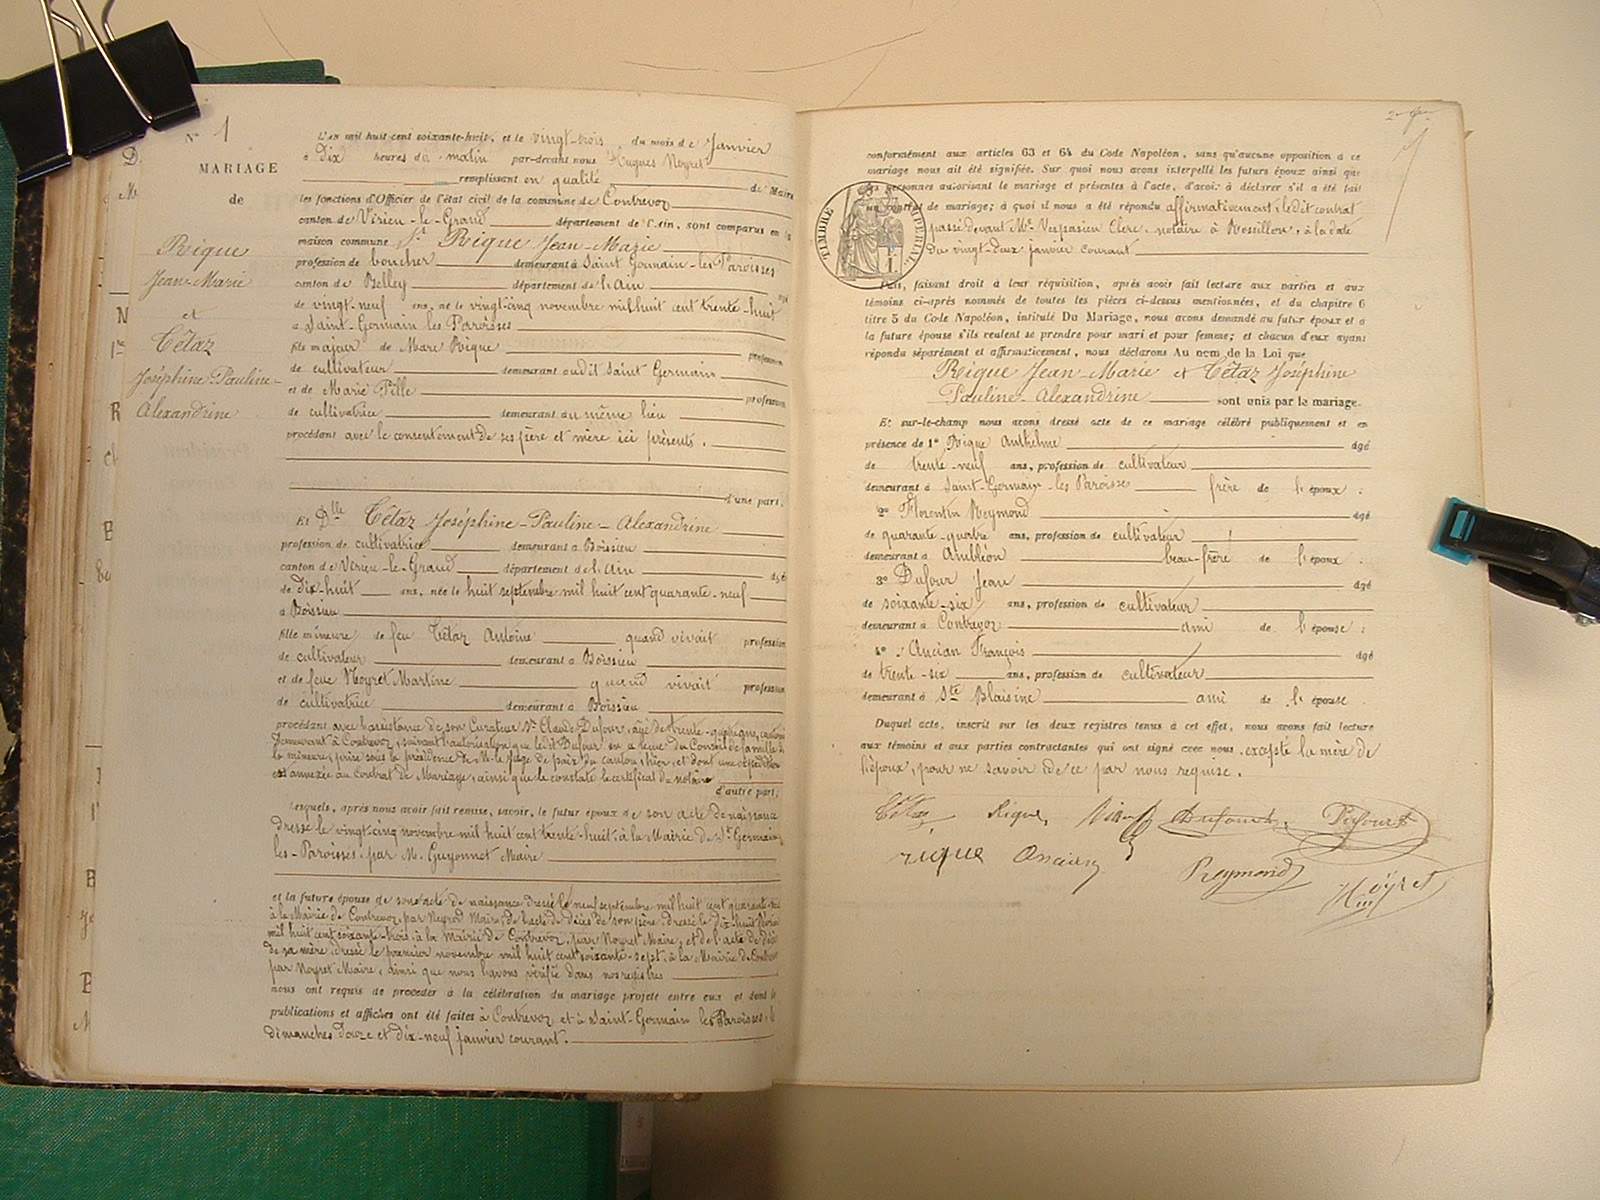 N° 1
MARIAGE
de
Rique
Jean-Marie
et
Tétaz
Joséphine-Pauline-
Alexandrine
L'an mil huit cent soixante-huit, et le vingt-trois du mois de Janvier
à dix heures du matin par-devant nous Hugues Neyret
remplissant en qualité de Maire
les fonctions d'Officier de l'état civil de la commune de Contrevoz
canton de Virieu-le-Grand département de l'Ain, sont comparus en la
maison commune Sr Rique Jean-Marie
profession de boucher demeurant à Saint Germain-les Paroisses
canton de Belley département de l'Ain âgé
de vingt-neuf ans, né le vingt-cinq novembre mil huit cent trente-huit
à Saint-Germain les Paroisses
fils majeur de Marc Rique profession
de cultivateur demeurant audit Saint Germain
et de Marie Pille profession
de cultivatrice demeurant au même lieu
procédant avec le consentement de ses père et mère ici présents.
d'une part.
Et Dlle Tétaz Joséphine-Pauline-Alexandrine
profession de cultivatrice demeurant à Boissieu
canton de Virieu-le-Grand département de l'Ain âgé
de dix-huit ans, née le huit septembre mil huit cent quarante-neuf
à Boissieu
fille mineure de feu Tétaz Antoine quand vivait profession
de cultivateur demeurant à Boissieu
et de feue Neyret Martine quand vivait profession
de cultivatrice demeurant à Boissieu
procédant avec l'assistance de son Curateur Sr Claude Dufour, âgé de trente-quatre ans,
demeurant à Contrevoz, suivant l'autorisation que le dit Dufour en a reçue du Conseil de famille de
la mineure, prise sous la présidence de M. le Juge de paix du canton, hier, et dont une expédition
est annexée au Contrat de Mariage, ainsi que le constate le certificat du notaire
d'autre part.
Lesquels, après nous avoir fait remise, savoir, le futur époux de son acte de naissance
dressé le vingt-cinq novembre mil huit cent trente-huit à la Mairie de St Germain
les-Paroisses par M. Guyonnet Maire
et la future épouse de son acte de naissance dressé le neuf septembre mil huit cent quarante-neuf
à la Mairie de Contrevoz, par Neyret Maire, de l'acte de décès de son père, dressé le dix-huit
mil huit cent soixante-trois, à la Mairie de Contrevoz, par Neyret Maire, et de l'acte de décès
de sa mère, dressé le premier novembre mil huit cent soixante-sept, à la Mairie de Contrevoz
par Neyret Maire, ainsi que nous l'avons vérifié dans nos registres
nous ont requis de procéder à la célébration du mariage projeté entre eux et dont les
publications et affiches ont été faites à Contrevoz et à Saint-Germain les Paroisses, les
dimanches douze et dix-neuf janvier courant.
conformément aux articles 63 et 64 du Code Napoléon, sans qu'aucune opposition à ce
mariage nous ait été signifiée. Sur quoi nous avons interpellé les futurs époux ainsi que
les personnes autorisant le mariage et présentes à l'acte, d'avoir à déclarer s'il a été fait
un contrat de mariage; à quoi il nous a été répondu affirmativement, le dit contrat
passé devant Me Vespasien Clerc, notaire à Rossillon, à la date
du vingt-deux janvier courant
TIMBRE IMPÉRIAL
Puis, faisant droit à leur réquisition, après avoir fait lecture aux parties et aux
témoins ci-après nommés de toutes les pièces ci-dessus mentionnées, et du chapitre 6
titre 5 du Code Napoléon, intitulé Du Mariage, nous avons demandé au futur époux et à
la future épouse s'ils veulent se prendre pour mari et pour femme; et chacun d'eux ayant
répondu séparément et affirmativement, nous déclarons Au nom de la Loi que
Rique Jean-Marie et Tétaz Joséphine
Pauline-Alexandrine sont unis par le mariage.
Et sur-le-champ nous avons dressé acte de ce mariage célébré publiquement et en
présence de 1° Rique Anthelme âgé
de trente-neuf ans, profession de cultivateur
demeurant à Saint-Germain-les Paroisses frère de l'époux.
2° Florentin Reymond âgé
de quarante-quatre ans, profession de cultivateur
demeurant à Ambléon beau-frère de l'époux.
3° Dufour Jean âgé
de soixante-six ans, profession de cultivateur
demeurant à Contrevoz ami de l'épouse;
4° Ancian François âgé
de trente-six ans, profession de cultivateur
demeurant à Ste Blaisine ami de l'épouse.
Duquel acte, inscrit sur les deux registres tenus à cet effet, nous avons fait lecture
aux témoins et aux parties contractantes qui ont signé avec nous, excepté la mère de
l'époux, pour ne savoir de ce par nous requise.
Tétaz Rique Dufour Dufour
rique Ancian Reymond Neyret